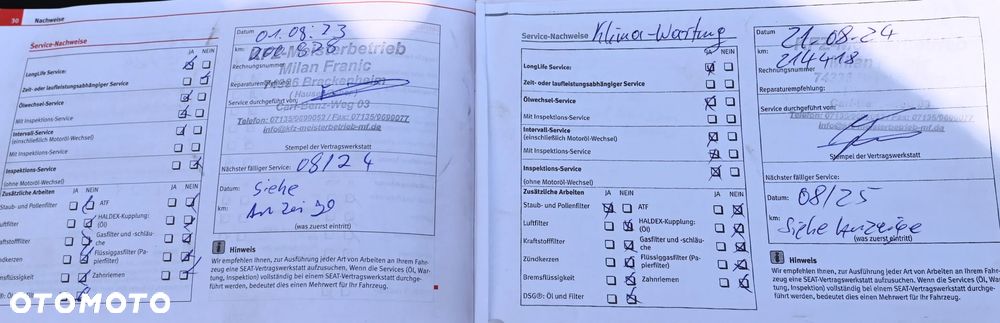 30 Nachweise
Service-Nachweise
JA NEIN
LongLife Service:
Zeit- oder laufleistungsabhängiger Service
Ölwechsel-Service
Mit Inspektions-Service
Intervall-Service
(einschließlich Motoröl-Wechsel)
Mit Inspektions-Service
Inspektions-Service
(ohne Motoröl-Wechsel)
Zusätzliche Arbeiten
JA NEIN
JA NEIN
Staub- und Pollenfilter
ATF
Luftfilter
HALDEX-Kupplung:
(Öl)
Kraftstofffilter
Gasfilter und -schläu-
che
Zündkerzen
Flüssiggasfilter (Pa-
pierfilter)
Bremsflüssigkeit
Zahnriemen
Datum
01.08.23
km:
Meisterbetrieb
Rechnungsnummer
Milan Franic
74336 Brackenheim
Reparaturempfehlung:
Service durchgeführt von:
Carl-Benz-Weg 03
Telefon: 07135/9699052 / Fax: 07135/9699077
info@kfz-meisterbetrieb-mf.de
Stempel der Vertragswerkstatt
Nächster fälliger Service:
08/24
Datum:
Siehe
km:
Anzeige
(was zuerst eintritt)
Hinweis
Wir empfehlen Ihnen, zur Ausführung jeder Art von Arbeiten an Ihrem Fahr-
zeug eine SEAT-Vertragswerkstatt aufzusuchen. Wenn die Services (Öl, War-
tung, Inspektion) vollständig bei einem SEAT-Vertragswerkstatt durchge-
führt werden, bedeutet dies einen Mehrwert für Ihr Fahrzeug.
OTOMOTO
Service-Nachweise
Klima-Wartung
JA NEIN
LongLife Service:
Zeit- oder laufleistungsabhängiger Service
Ölwechsel-Service
Mit Inspektions-Service
Intervall-Service
(einschließlich Motoröl-Wechsel)
Mit Inspektions-Service
Inspektions-Service
(ohne Motoröl-Wechsel)
Zusätzliche Arbeiten
JA NEIN
JA NEIN
Staub- und Pollenfilter
ATF
Luftfilter
HALDEX-Kupplung:
(Öl)
Kraftstofffilter
Gasfilter und -schläu-
che
Zündkerzen
Flüssiggasfilter (Pa-
pierfilter)
Bremsflüssigkeit
Zahnriemen
DSG®: Öl und Filter
Datum
21-08-24
km:
214418
Rechnungsnummer
Reparaturempfehlung:
Service durchgeführt von:
Stempel der Vertragswerkstatt
Nächster fälliger Service:
Datum:
08/25
km:
Siehe Anzeige
(was zuerst eintritt)
Hinweis
Wir empfehlen Ihnen, zur Ausführung jeder Art von Arbeiten an Ihrem Fahr-
zeug eine SEAT-Vertragswerkstatt aufzusuchen. Wenn die Services (Öl, War-
tung, Inspektion) vollständig bei einem SEAT-Vertragswerkstatt durchge-
führt werden, bedeutet dies einen Mehrwert für Ihr Fahrzeug.